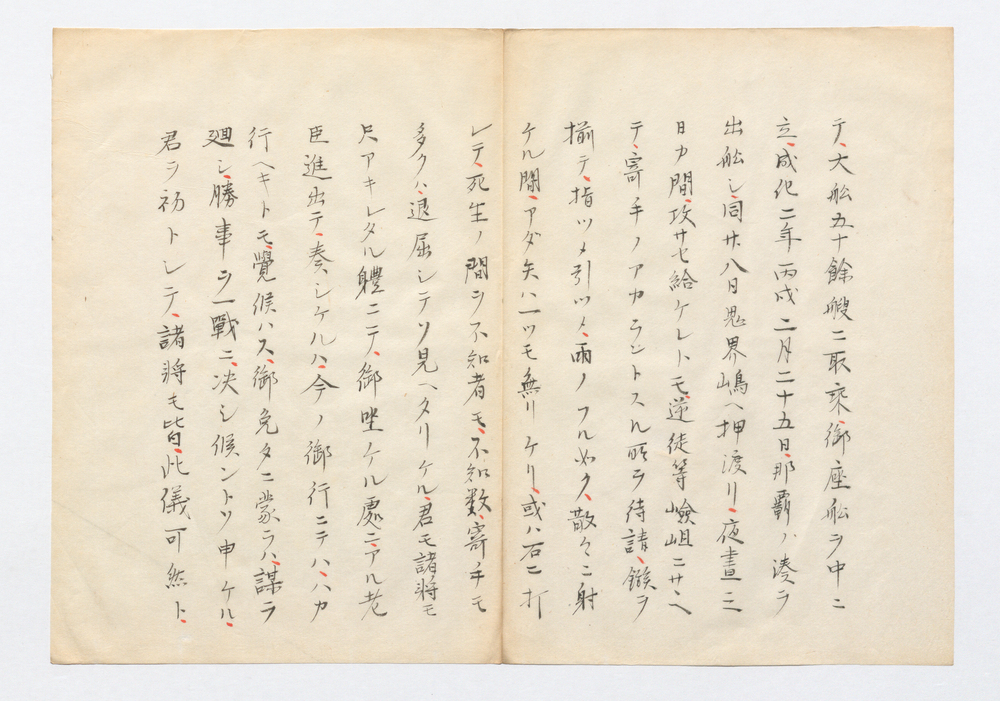 テ、大舩五十餘艘ニ取乘、御座舩ヲ中ニ
立、成化二年丙戌二月二十五日、那覇ノ湊ヲ
出舩シ、同廿八日鬼界嶋ヘ押渡リ、夜晝三
日カ間、攻サセ給ケレトモ、逆徒等嶮岨ニサヽヘ
テ、寄手ノアカラントスル所ヲ待請、鏃ヲ
揃テ、指ツメ引ツメ、雨ノフル如ク、散々ニ射
ケル間、アダ矢ハ一ツモ無リケリ、或ハ石ニ打
レテ、死生ノ間ヲ不知者モ、不知数、寄手モ
多クハ、退屈シテソ見ヘタリケル、君モ諸將モ
只アキレタル軆ニテ、御坐ケル處ニ、アル老
臣進出テ、奏シケルハ、今ノ御行ニテハ、ハカ
行ヘキトモ、覺候ハス、御免タニ蒙ラハ、謀ヲ
廻シ、勝事ヲ一戰ニ、决シ候ントソ申ケル、
君ヲ初トシテ、諸將モ皆、此儀可然ト、